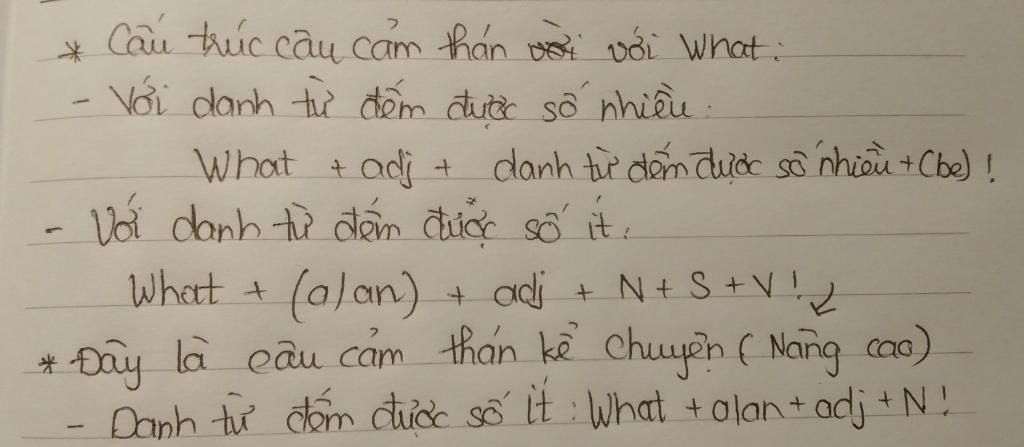 * Cấu trúc câu cảm thán với với What:
- Với danh từ đếm được số nhiều:
What + adj + danh từ đếm được số nhiều + (be) !
- Với danh từ đếm được số ít:
What + (a/an) + adj + N + S + V ! ↙
* Đây là câu cảm thán kể chuyện (Nâng cao)
- Danh từ đếm được số ít : What + a/an + adj + N !